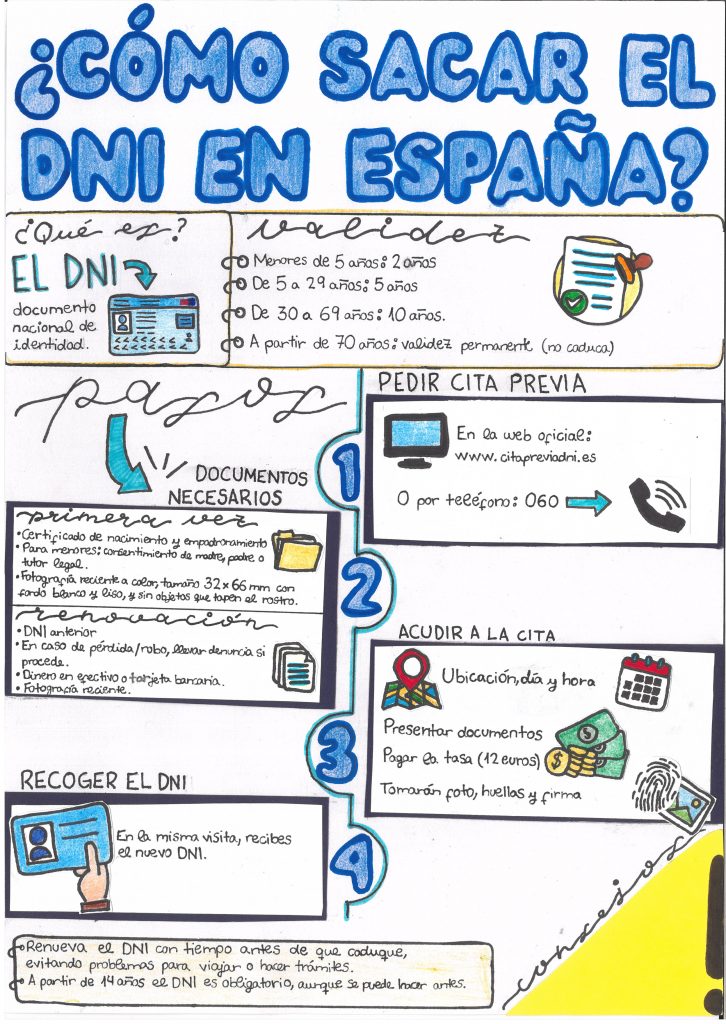 ¿CÓMO SACAR EL
DNI EN ESPAÑA?
¿Qué es?
EL DNI
documento
nacional de
identidad.
validez
Menores de 5 años: 2 años
De 5 a 29 años: 5 años
De 30 a 69 años: 10 años.
A partir de 70 años: validez permanente (no caduca)
pasos
1
PEDIR CITA PREVIA
En la web oficial:
www.citapreviadni.es
O por teléfono: 060
2
DOCUMENTOS
NECESARIOS
primera vez
• Certificado de nacimiento y empadronamiento
• Para menores: consentimiento de madre, padre o
tutor legal.
• Fotografía reciente a color, tamaño 32x66 mm con
fondo blanco y liso, y sin objetos que tapen el rostro.
renovación
• DNI anterior
• En caso de pérdida/robo, llevar denuncia si
procede.
• Dinero en efectivo o tarjeta bancaria.
• Fotografía reciente.
3
ACUDIR A LA CITA
Ubicación, día y hora
Presentar documentos
Pagar la tasa (12 euros)
Tomarán foto, huellas y firma
4
RECOGER EL DNI
En la misma visita, recibes
el nuevo DNI.
consejos
!
Renueva el DNI con tiempo antes de que caduque,
evitando problemas para viajar o hacer trámites.
A partir de 14 años el DNI es obligatorio, aunque se puede hacer antes.